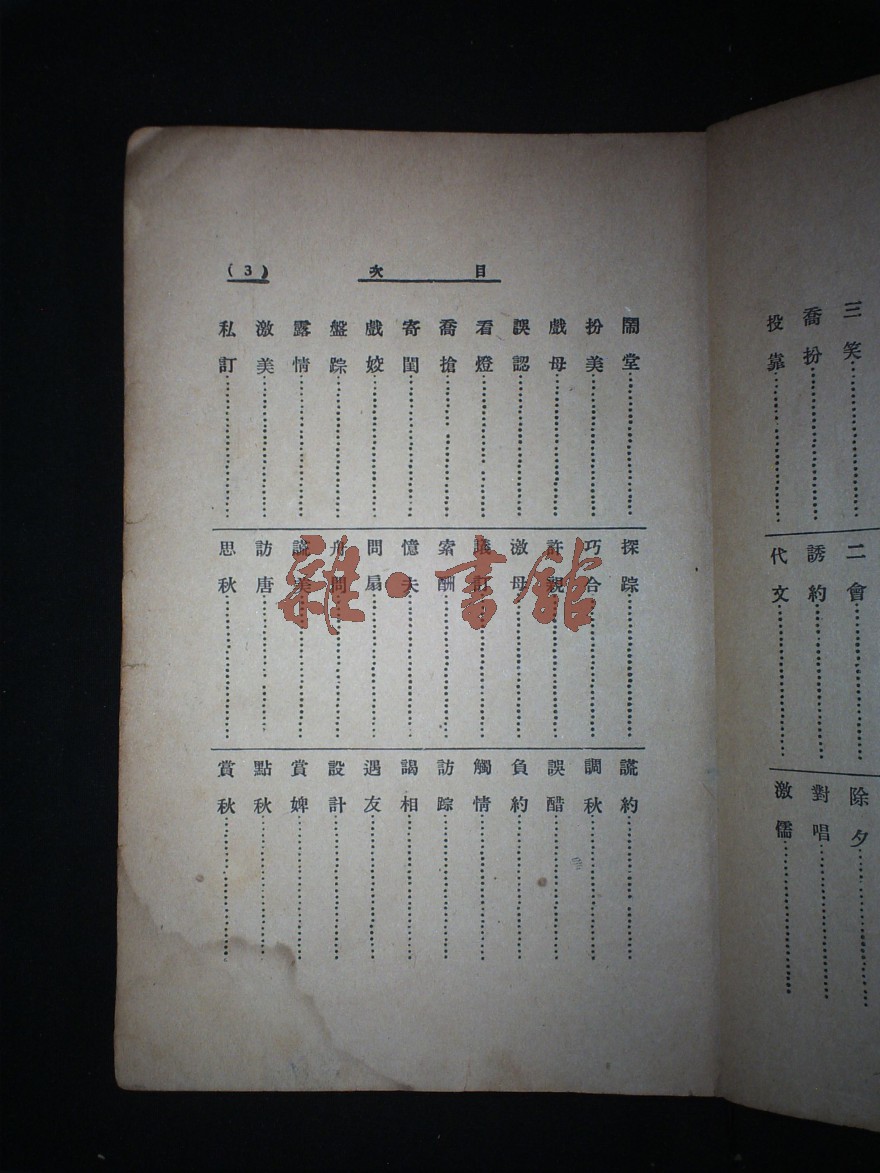 三笑
喬扮
投靠
二會
誘約
代文
除夕
對唱
激儒
目次
(3)
鬧堂
扮美
戲母
誤認
看燈
喬搶
寄閨
戲姣
盤踪
露情
激美
私訂
探踪
巧合
許親
激母
索酬
憶夫
問扇
舟問
美
訪唐
思秋
謊約
調秋
誤醋
負約
觸情
訪踪
謁相
遇友
設計
賞婢
點秋
賞秋
雜·書館